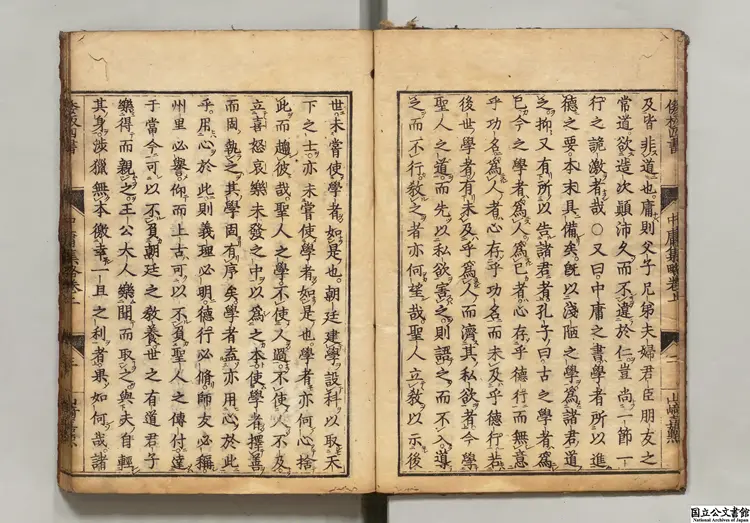 倭板四書 中庸集略卷上 二 山崎嘉點
及皆非道也庸則父子兄弟夫婦君臣朋友之
常道欲造次顛沛久而不違於仁豈尚一節一
行之詭激者哉○又曰中庸之書學者所以進
德之要本末具備矣既以淺陋之學爲諸君道
之抑又有所以告諸君者孔子曰古之學者爲
己今之學者爲人爲己者心存乎德行而無意
乎功名爲人者心存乎功名而未及乎德行若
後世學者有未及乎爲人而濟其私欲者今學
聖人之道而先以私欲害之則語之而不入導
之而不行敎之者亦何望哉聖人立敎以示後
世未嘗使學者如是也朝廷建學設科以取天
下之士亦未嘗使學者如是也學者亦何心捨
此而趨彼哉聖人之學不使人過不使人不及
立喜怒哀樂未發之中以爲之本使學者擇善
而固執之其學固有序矣學者盍亦用心於此
乎用心於此則義理必明德行必脩師友必稱
州里必譽仰而上古可以不負聖人之傳付達
于當今可以不負朝廷之敎養世之有道君子
樂得而親之王公大人樂聞而取之與夫自輕
其身涉獵無本徼幸一旦之利者果如何哉諸
倭板四書
国立公文書館
National Archives of Japan